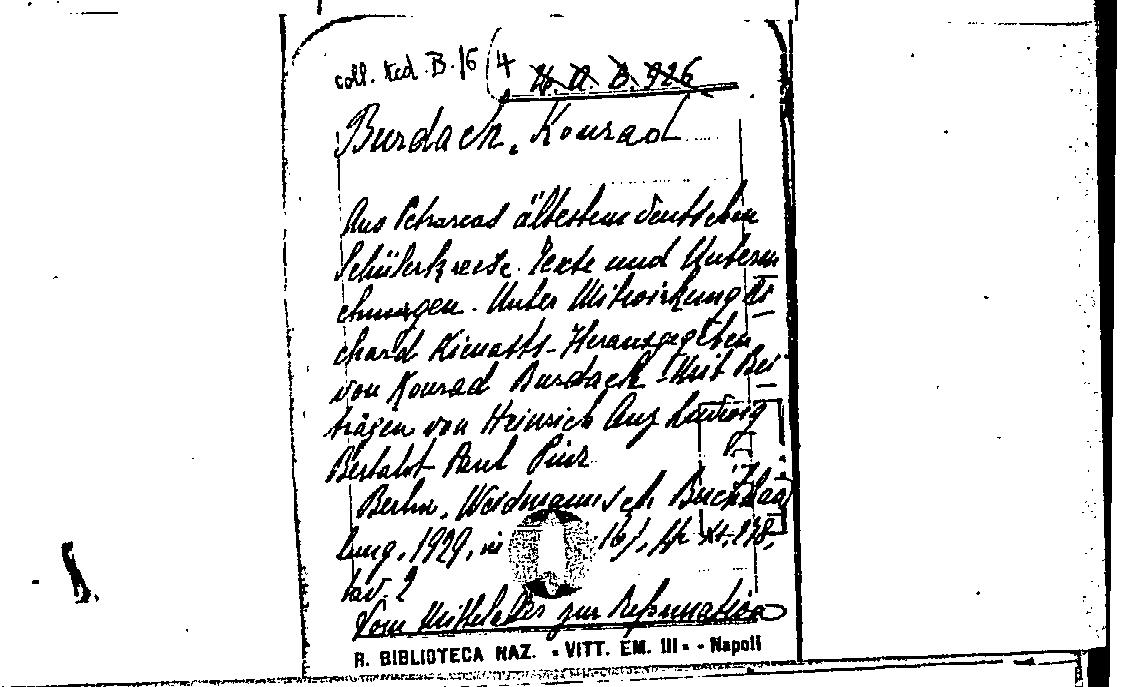 coll. ted. B. 16 (4 H. A. B. 926
Burdach, Konrad
Aus Petrarcas ältestem deutschen
Schülerkreise. Texte und Untersu
chungen. Unter Mitwirkung Ri
chard Kienasts - Herausgegeben
von Konrad Burdach - Mit Bei
trägen von Heinrich Anz Ludwig
Bertalot Paul Piur
Berlin, Weidmannsch Buchhand
lung, 1929, in 16/, pp XI,
tav. 2
Vom Mittelalter zur Reformation
R. BIBLIOTECA NAZ. - VITT. EM. III - - Napoli